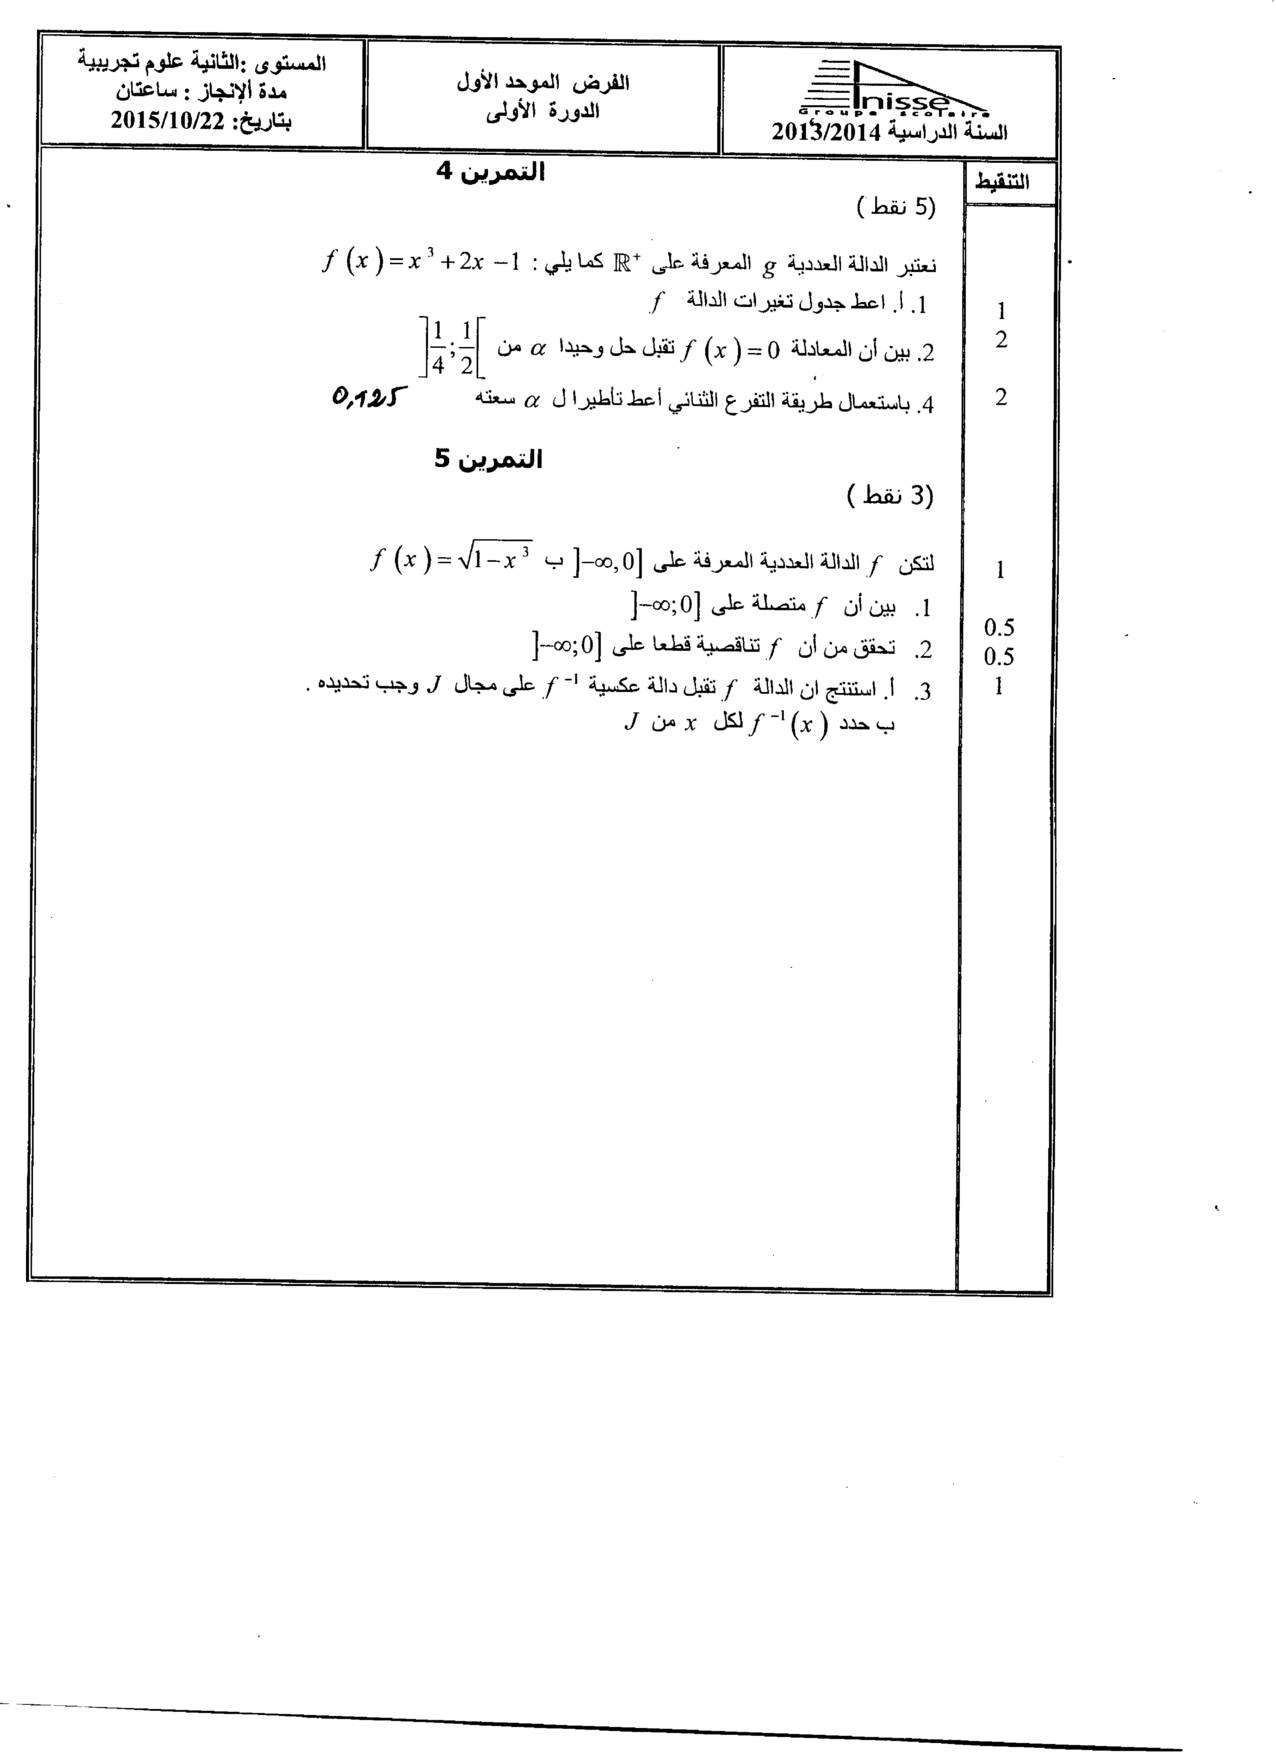 المستوى :الثانية علوم تجريبية
مدة الإنجاز : ساعتان
بتاريخ: 2015/10/22
الفرض الموحد الأول
الدورة الأولى
Anisse
Groupe scolaire
السنة الدراسية 2013/2014
التنقيط
التمرين 4
(5 نقط )
نعتبر الدالة العددية g المعرفة على ℝ⁺ كما يلي : f (x) = x³ + 2x − 1
1. أ. اعط جدول تغيرات الدالة f
1
2. بين أن المعادلة f (x) = 0 تقبل حل وحيدا α من ]1/4 ; 1/2[
2
4. باستعمال طريقة التفرع الثنائي أعط تأطيرا ل α سعته 0,125
2
التمرين 5
(3 نقط )
لتكن f الدالة العددية المعرفة على ]−∞,0] ب f (x) = √(1−x³)
1
1. بين أن f متصلة على ]−∞;0]
0.5
2. تحقق من أن f تناقصية قطعا على ]−∞;0]
0.5
3. أ. استنتج ان الدالة f تقبل دالة عكسية f⁻¹ على مجال J وجب تحديده .
1
ب حدد f⁻¹(x) لكل x من J